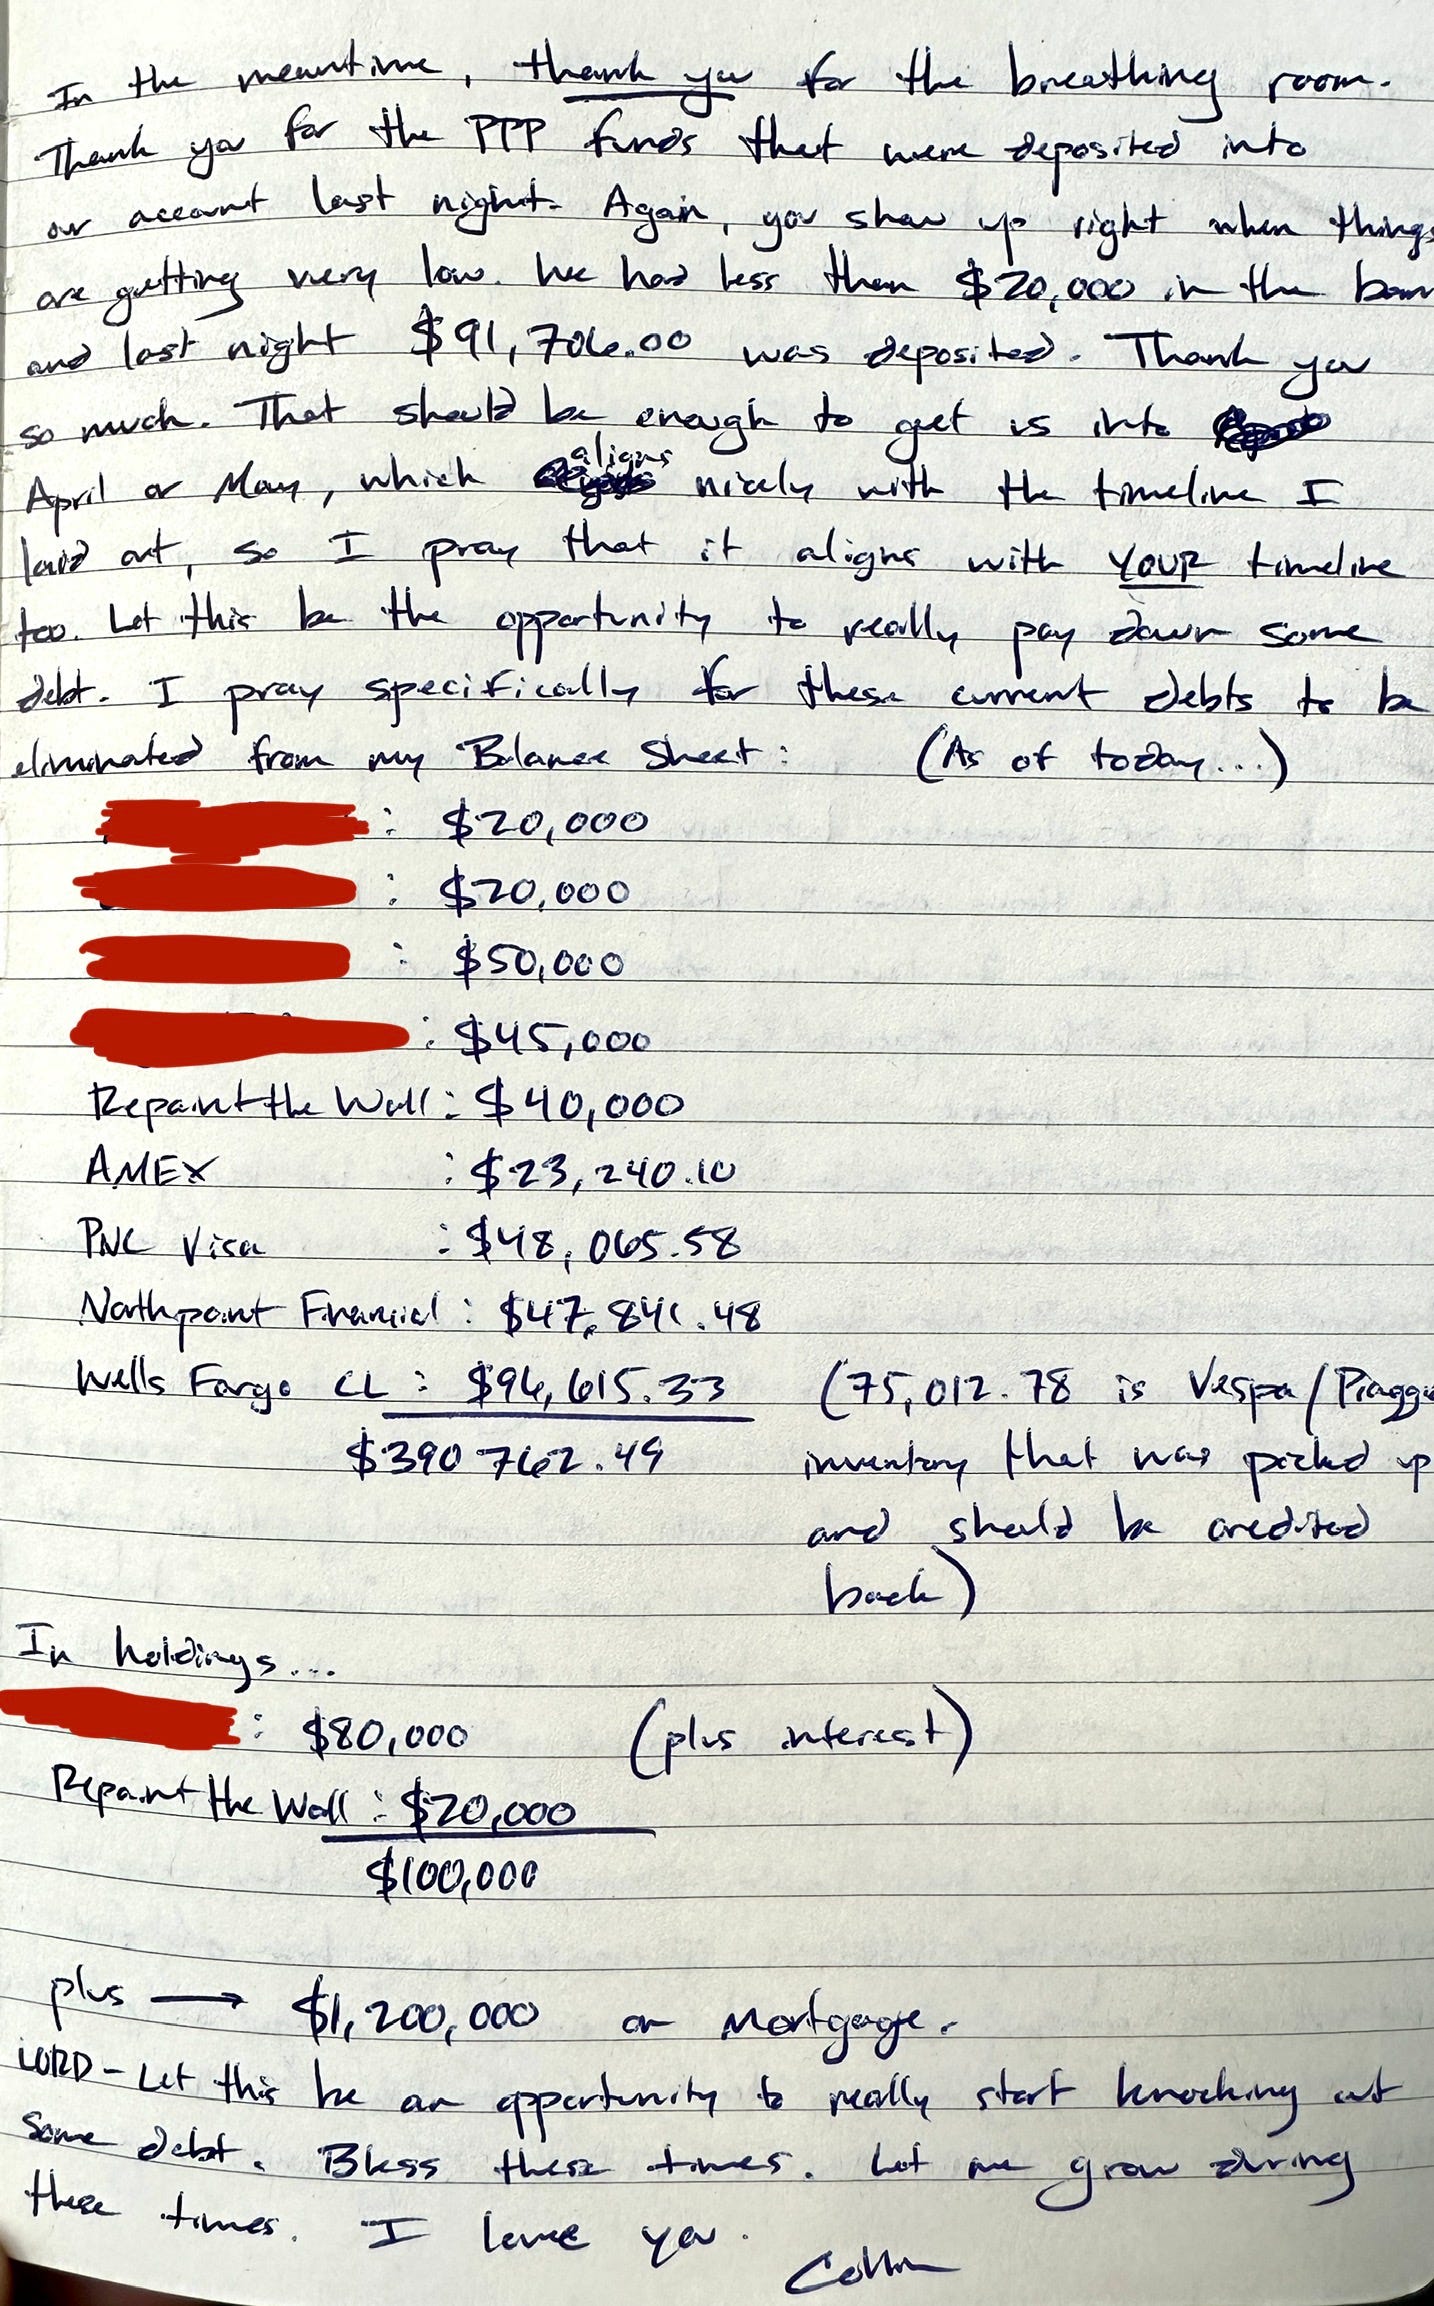 In the meantime, thank you for the breathing room.
Thank you for the PPP funds that were deposited into
our account last night. Again, you show up right when things
are getting very low. We had less than $20,000 in the ban
and last night $91,706.00 was deposited. Thank you
so much. That should be enough to get us into
April or May, which aligns nicely with the timeline I
laid out, so I pray that it aligns with YOUR timeline
too. Let this be the opportunity to really pay down some
debt. I pray specifically for these current debts to be
eliminated from my Balance Sheet: (As of today...)
: $20,000
: $20,000
: $50,000
: $45,000
Repaint the Wall: $40,000
AMEX : $23,240.10
PNC Visa : $48,065.58
Northpoint Financial: $47,841.48
Wells Fargo CL: $96,615.33 (75,012.78 is Vespa/Piaggio
$390 762.49 inventory that was picked up
and should be credited
back)
In holdings...
: $80,000 (plus interest)
Repaint the Wall: $20,000
$100,000
plus → $1,200,000 on Mortgage.
LORD - Let this be an opportunity to really start knocking out
some debt. Bless these times. Let me grow during
these times. I love you.
Collin